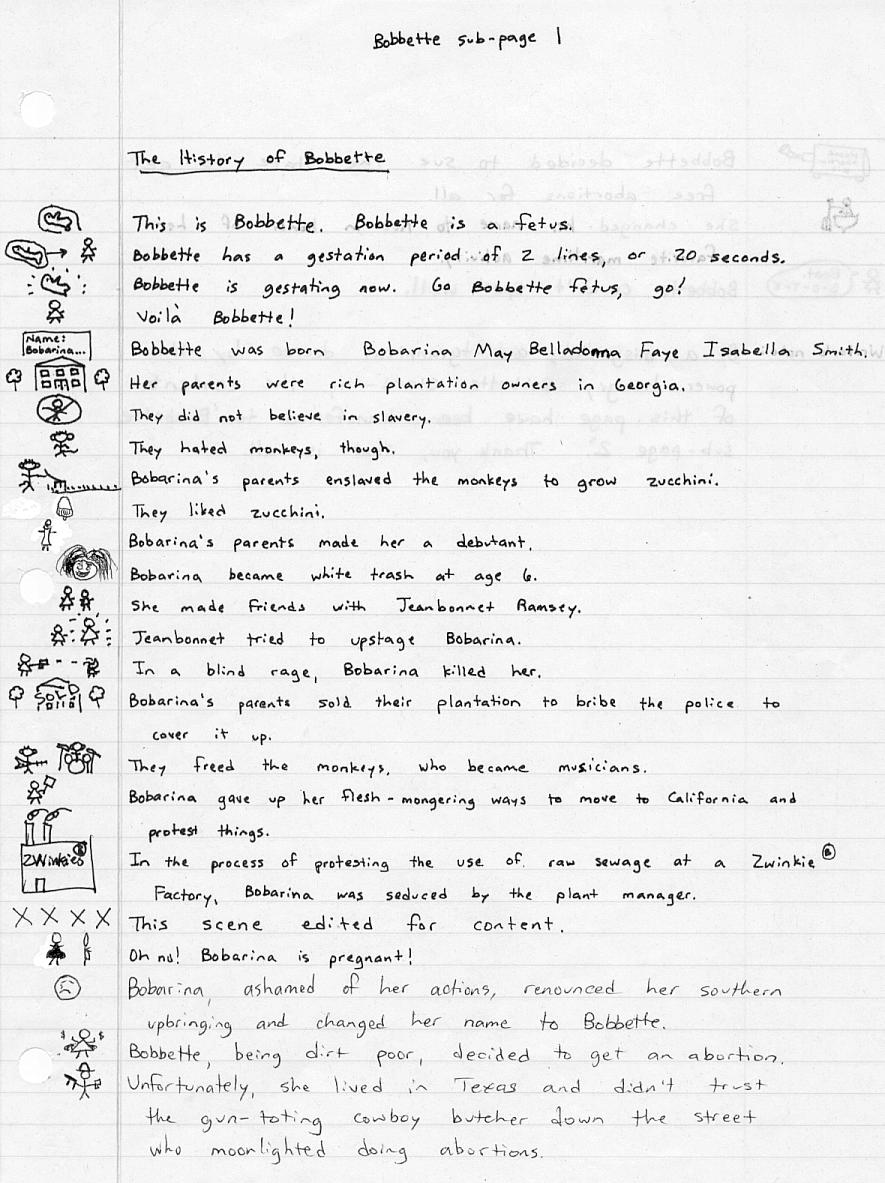 Bobbette sub-page 1
The History of Bobbette
This is Bobbette. Bobbette is a fetus.
Bobbette has a gestation period of 2 lines, or 20 seconds.
Bobbette is gestating now. Go Bobbette fetus, go!
Voilà Bobbette!
Name:
Bobarina...
Bobbette was born Bobarina May Belladonna Faye Isabella Smith.
Her parents were rich plantation owners in Georgia.
They did not believe in slavery.
They hated monkeys, though.
Bobarina's parents enslaved the monkeys to grow zucchini.
They liked zucchini.
Bobarina's parents made her a debutant.
Bobarina became white trash at age 6.
She made friends with Jeanbonnet Ramsey.
Jeanbonnet tried to upstage Bobarina.
In a blind rage, Bobarina killed her.
SOLD
Bobarina's parents sold their plantation to bribe the police to
cover it up.
They freed the monkeys, who became musicians.
Bobarina gave up her flesh-mongering ways to move to California and
protest things.
ZWinkies®
In the process of protesting the use of raw sewage at a Zwinkie®
Factory, Bobarina was seduced by the plant manager.
X X X X
This scene edited for content.
Oh no! Bobarina is pregnant!
Bobarina, ashamed of her actions, renounced her southern
upbringing and changed her name to Bobbette.
$ $
Bobbette, being dirt poor, decided to get an abortion.
Unfortunately, she lived in Texas and didn't trust
the gun-toting cowboy butcher down the street
who moonlighted doing abortions.